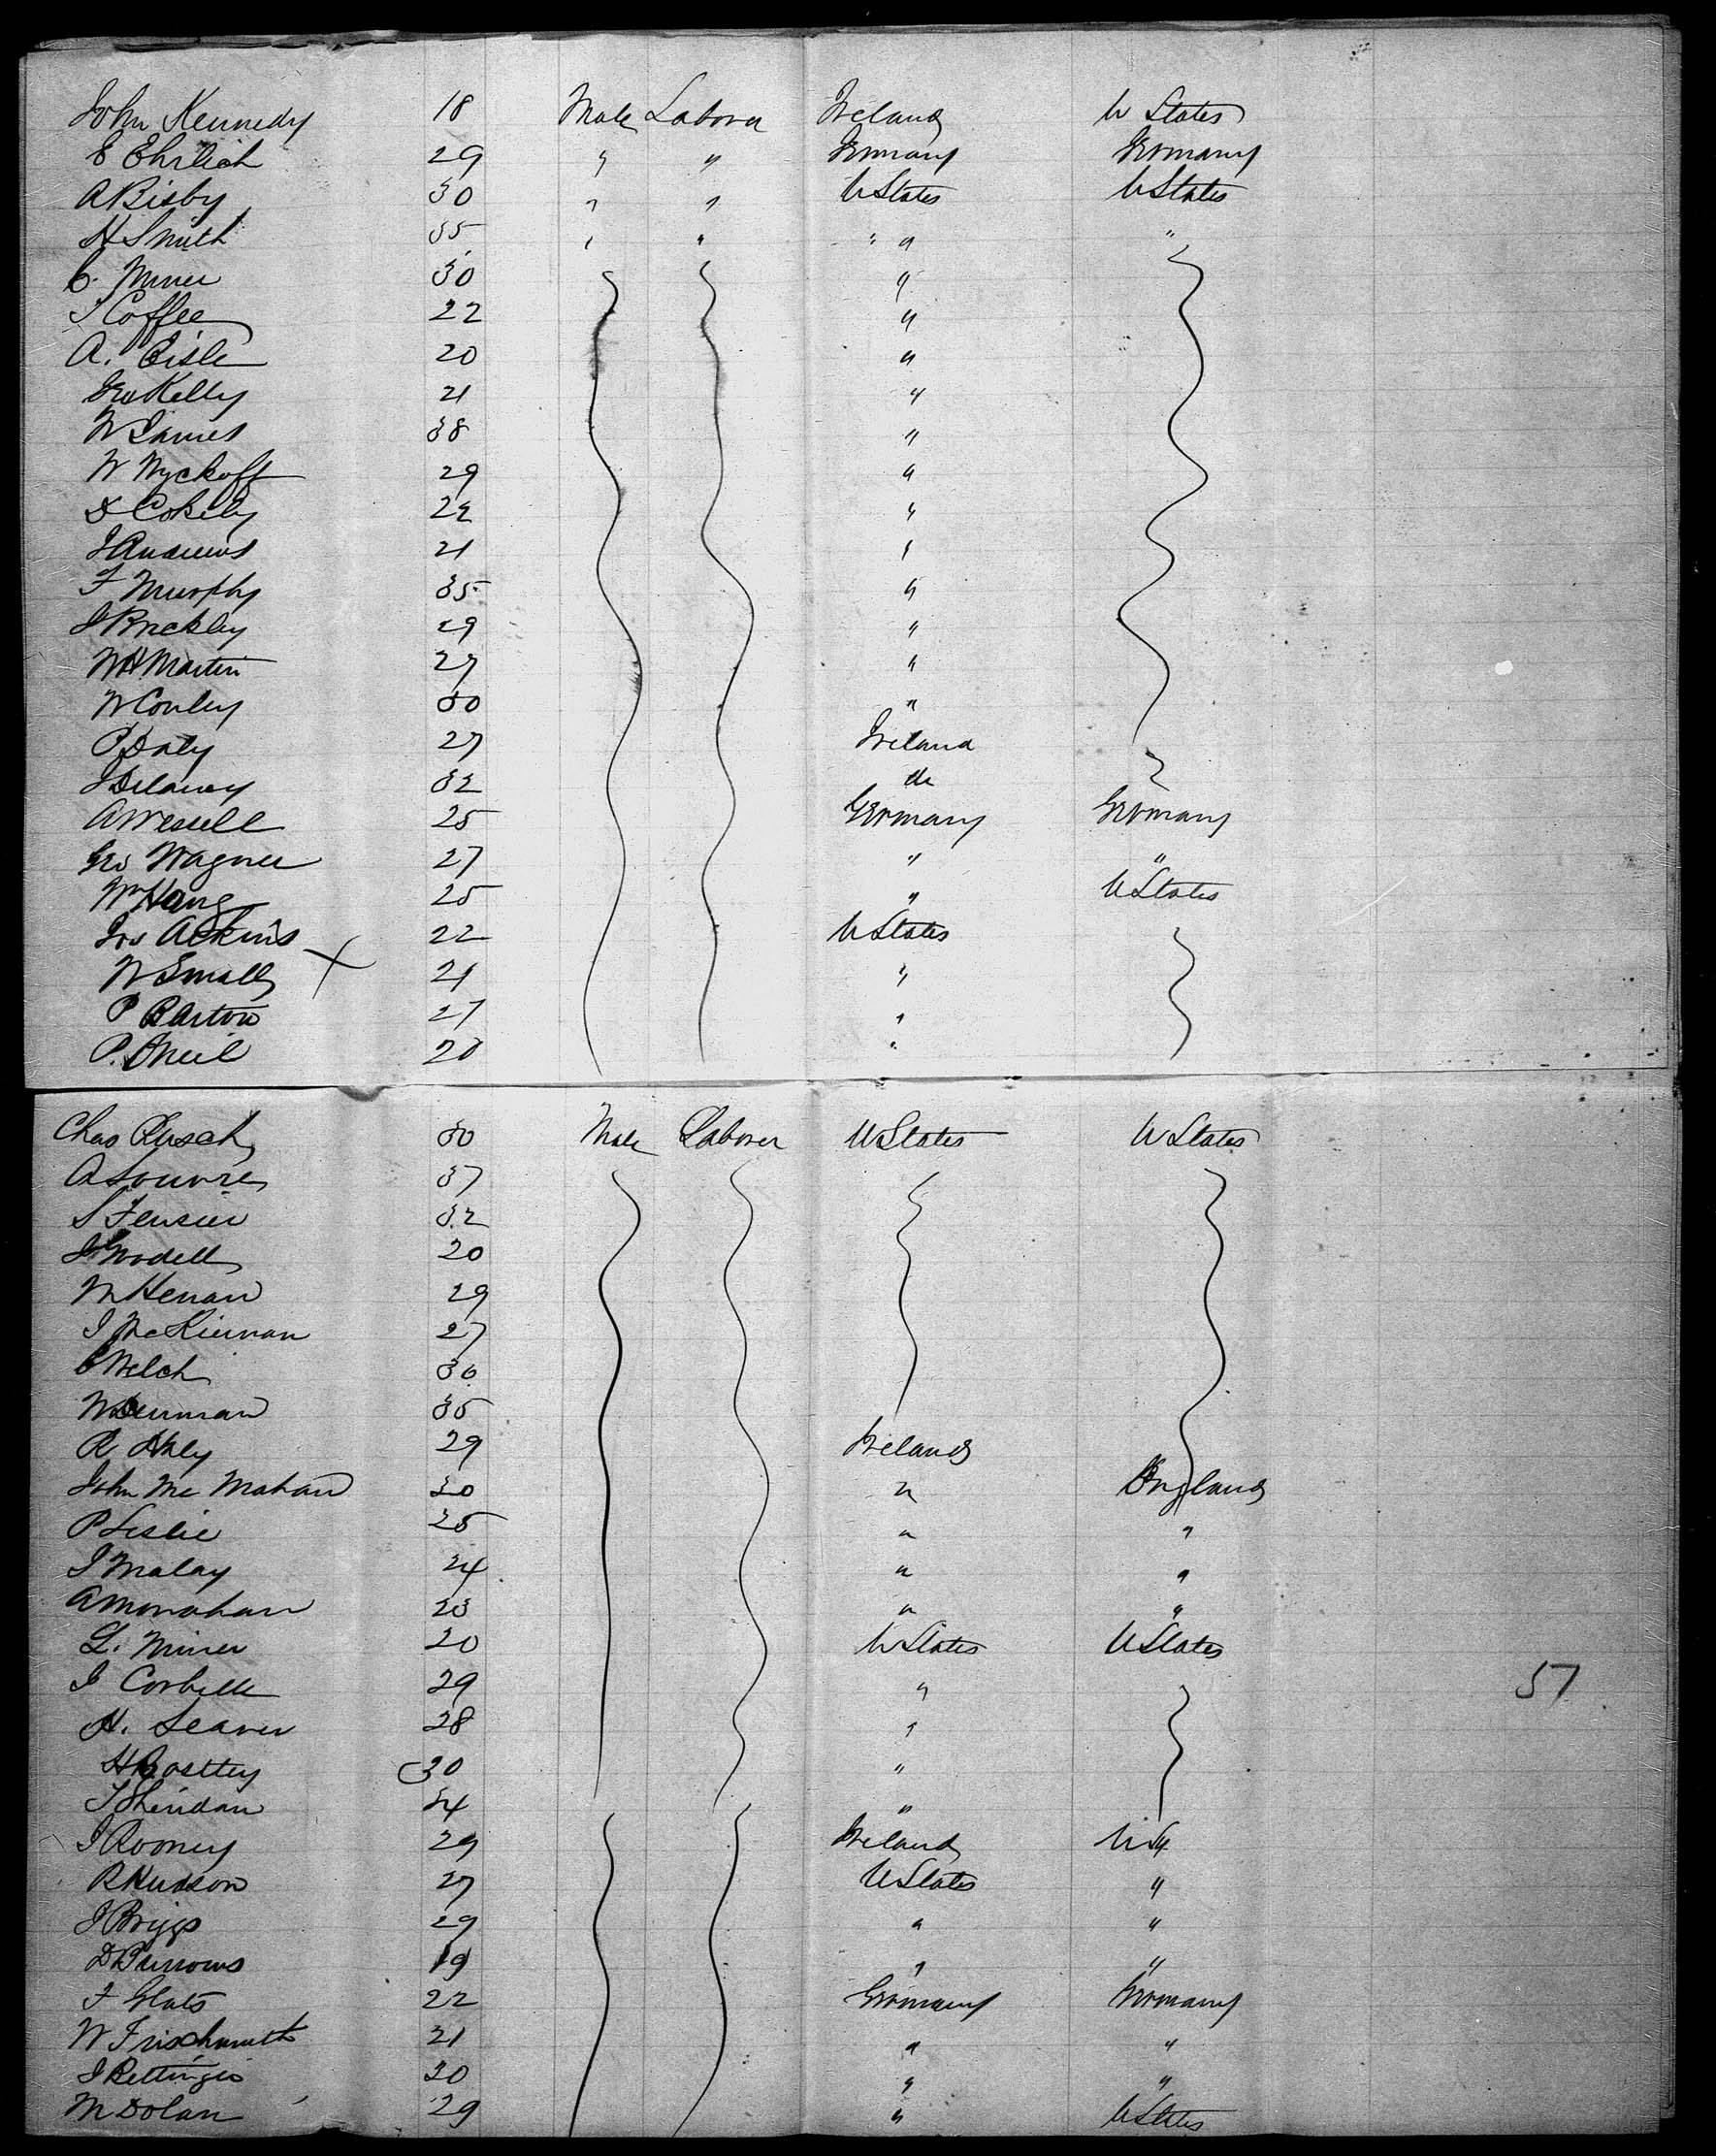 John Kennedy 18 Male Laborer Ireland U States
E Ehrlich 29 " " Germany Germany
A Bisby 30 " " U States U States
H Smith 35 " " " " "
C. Miner 30 "
J Coffee 22 "
A. Eisle 20 "
Geo Kelly 21 "
W James 38 "
W Wyckoff 29 "
D Cokely 22 "
J Andrews 21 "
F Murphy 35 "
J Brickley 29 "
W H Martin 27 "
W Conley 30 "
P Daly 27 Ireland
J Delaney 32 do
A Wesell 25 Germany Germany
Geo Wagner 27 " "
Wm Hang 25 " U States
Jos Adkins 22 U States
W Small 21 "
P Barton 27 "
P. O'Neil 20 "
Chas Rusch 30 Male Laborer U States U States
A Louvre 37
S Fensier 32
J Wodell 20
M Henan 29
J McKiernan 27
C Welch 30
W Denman 35
R Haly 29 Ireland
John Mc Mahan 30 " England
P Leslie 25 " "
J Malay 24 " "
A Monahan 23 " "
L. Miner 20 U States U States
J Corbell 29 "
57
H. Seaver 28 "
H Bostley 30 "
J Sheridan 34 "
J Rooney 29 Ireland U St
R Hudson 27 U States "
J Briggs 29 " "
D Burrows 19 " "
F Glats 22 Germany Germany
W Frischmuth 21 " "
J Rettinger 20 " "
M Dolan 29 " U States